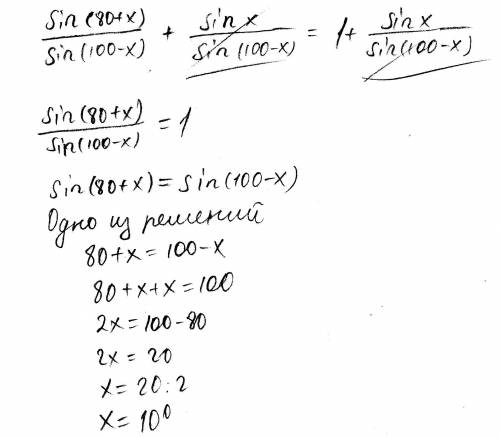 sin(80+x)/sin(100-x) + sin x/sin(100-x) = 1+ sin x/sin(100-x)
sin(80+x)/sin(100-x) = 1
sin(80+x)=sin(100-x)
Одно из решений
80+x=100-x
80+x+x=100
2x=100-80
2x=20
x=20:2
x=10⁰